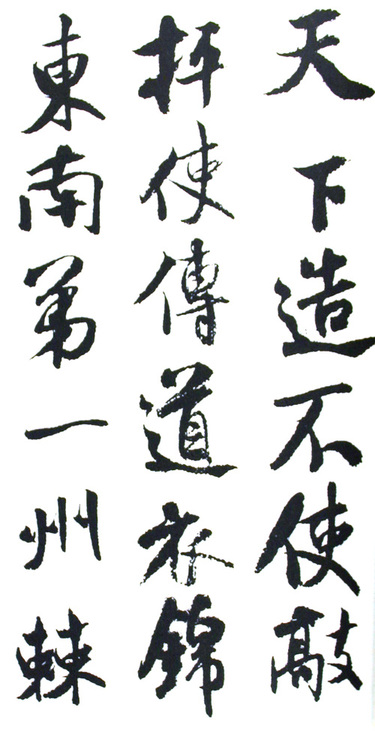 天下造不使敲
抨使傳道衣錦
東南第一州棘